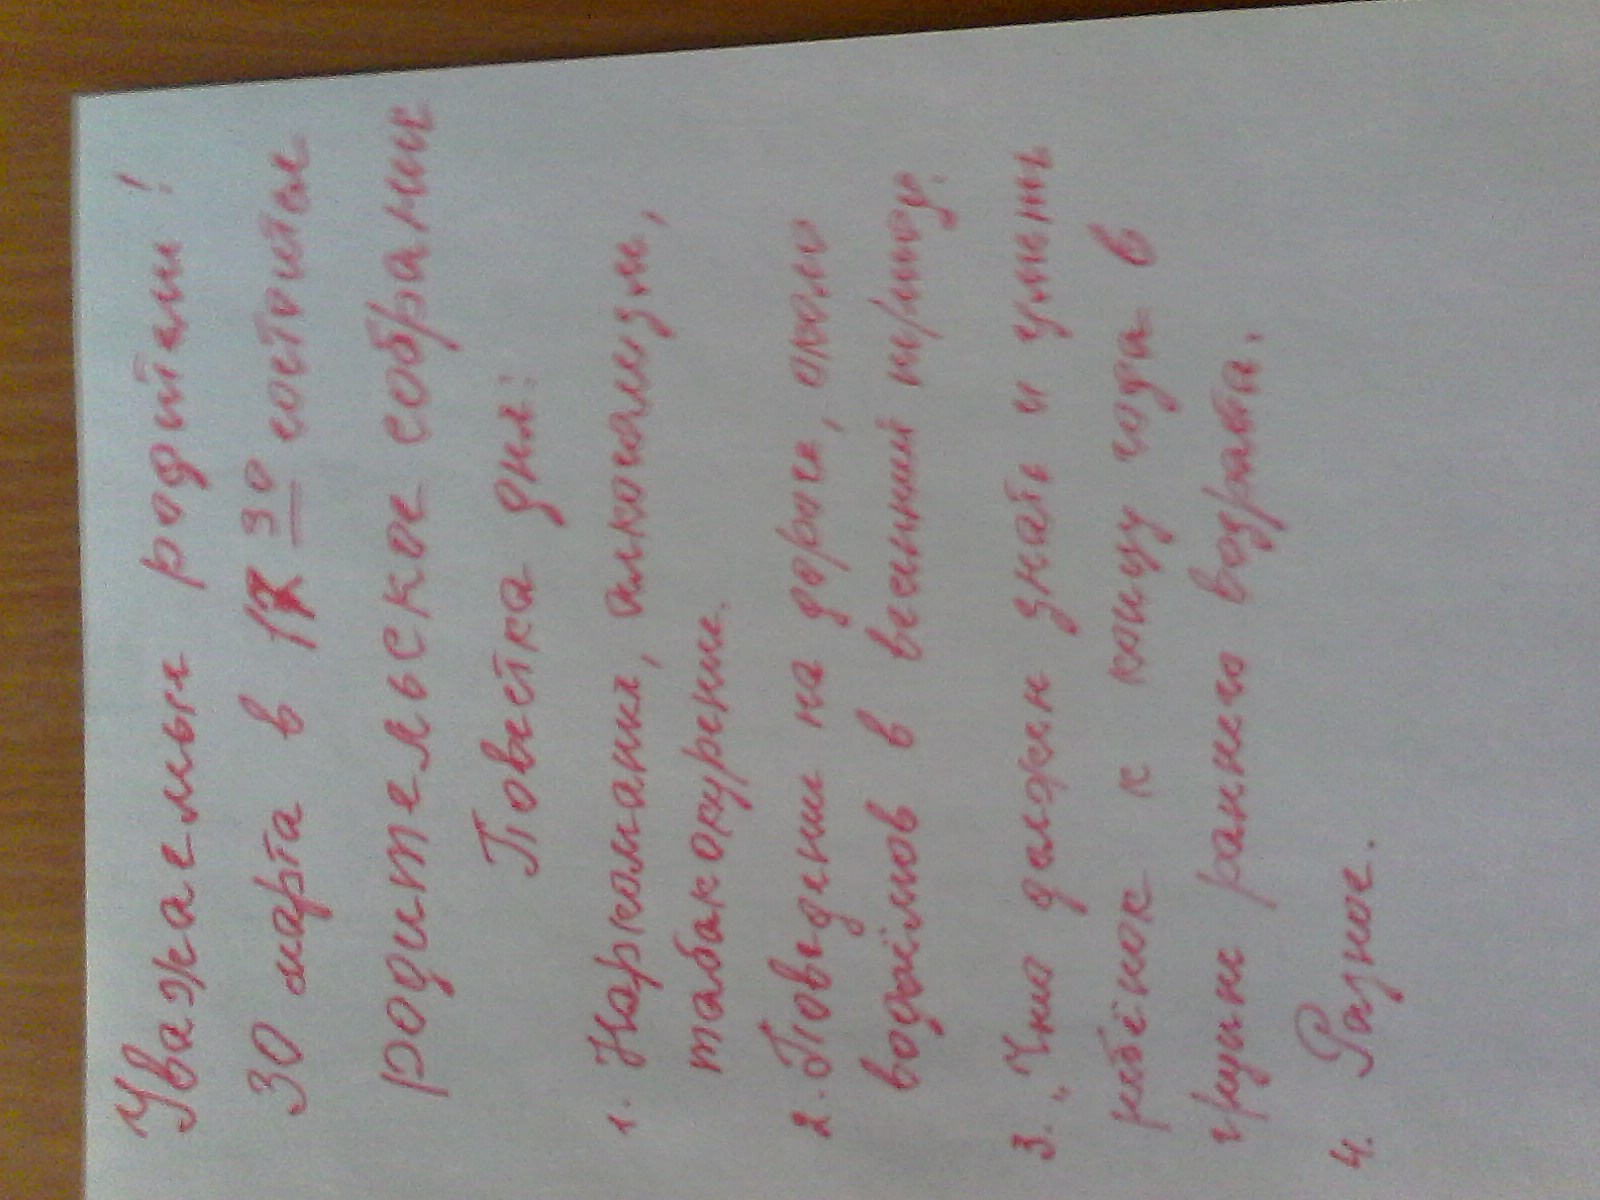 Уважаемые родители!
30 марта в 17 30 состоится
родительское собрание
Повестка дня:
1. Наркомания, алкоголизм,
табакокурение.
2. Поведение на дороге, около
водоёмов в весенний период.
3. „Что должен знать и уметь
ребёнок к концу года в
группе раннего возраста.
4. Разное.